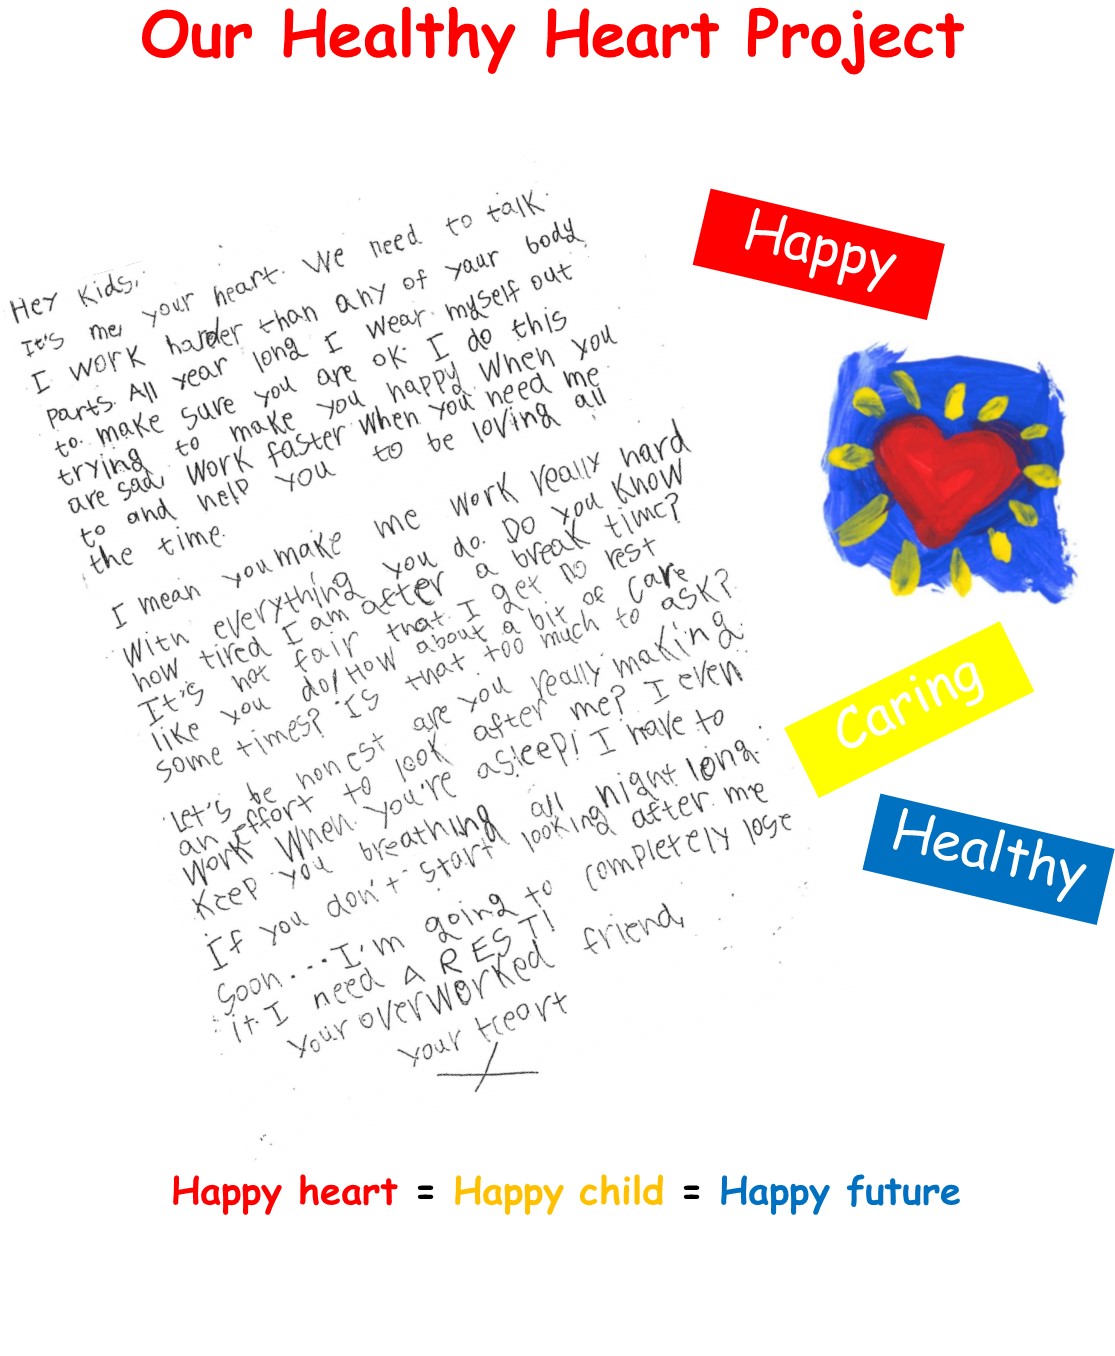 Our Healthy Heart Project
Hey Kids,
It's me, your heart. We need to talk.
I work harder than any of your body
parts. All year long I wear myself out
to make sure you are ok. I do this
trying to make you happy. When you
are sad work faster when you need me
to and help you to be loving all
the time.
I mean you make me work really hard
with everything you do. Do you know
how tired I am after a break time?
It's not fair that I get no rest
like you do! How about a bit of care
some times? Is that too much to ask?
Let's be honest are you really making
an effort to look after me? I even
work when you're asleep! I have to
keep you breathing all night long.
If you don't start looking after me
soon... I'm going to completely lose
it. I need A REST!
your overworked friend,
your Heart
X
Happy
Caring
Healthy
Happy heart = Happy child = Happy future